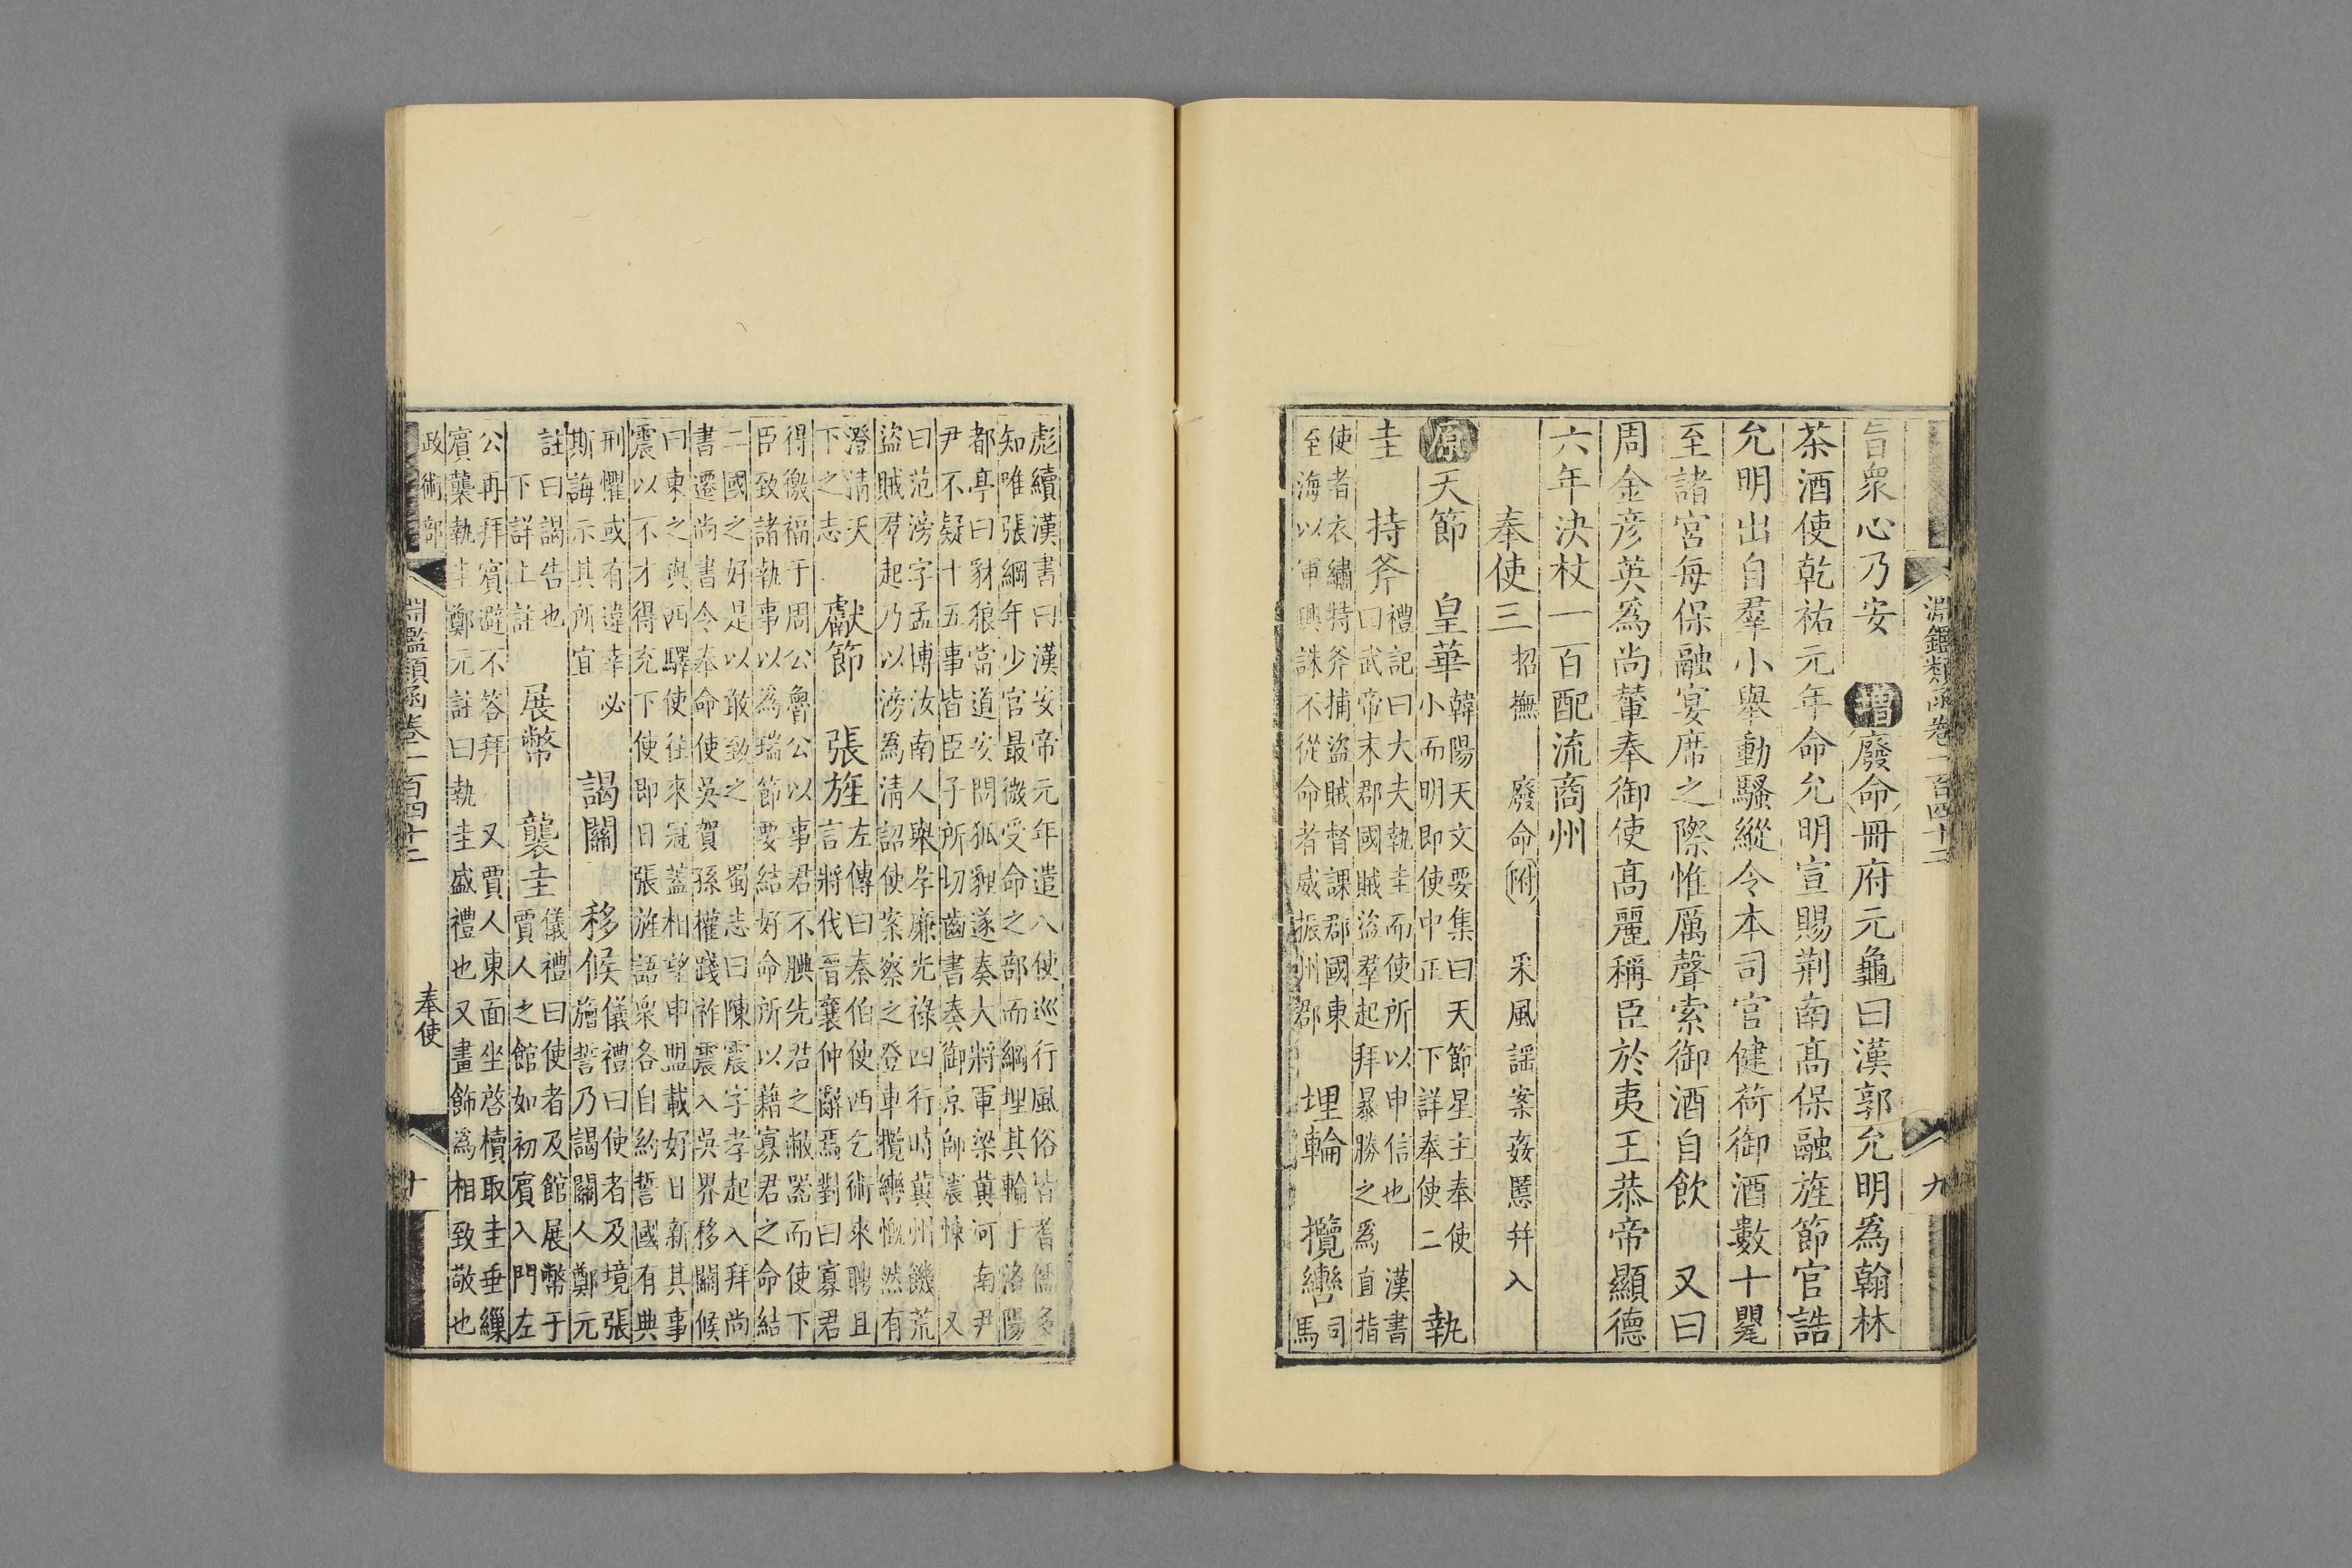 淵鑑類函卷一百四十二
九
旨衆心乃安 增廢命冊府元龜曰漢郭允明爲翰林
茶酒使乾祐元年命允明宣賜荆南高保融旌節官誥
允明出自羣小舉動騷縱令本司官健荷御酒數十罌
至諸宮每保融宴席之際惟厲聲索御酒自飲 又曰
周金彦英爲尚輦奉御使高麗稱臣於夷王恭帝顯德
六年決杖一百配流商州
奉使三 招撫 廢命附 采風謡案姦慝并入
原天節 皇華 韓陽天文要集曰天節星主奉使 小而明即使中正 下詳奉使二 執
圭 持斧 禮記曰大夫執圭而使所以申信也 漢書曰武帝末郡國賊盜羣起拜暴勝之爲直指
使者衣繡持斧捕盜賊督課郡國東至海以軍興誅不從命者威振州郡 埋輪 攬轡 司馬
彪續漢書曰漢安帝元年遣八使巡行風俗皆耆儒多
知唯張綱年少官最微受命之部而綱埋其輪于洛陽
都亭曰豺狼當道安問狐狸遂奏大將軍梁冀河南尹
尹不疑十五事皆臣子所切齒書奏御京師震悚 又
曰范滂字孟博汝南人舉孝廉光祿四行時冀州饑荒
盜賊羣起乃以滂爲清詔使案察之登車攬轡慨然有
澄清天下之志 獻節 張旌 左傳曰秦伯使西乞術來聘且言將伐晉襄仲辭焉對曰寡君
得徼福于周公魯公以事君不腆先君之敝器而使下
臣致諸執事以爲瑞節要結好命所以藉寡君之命結
二國之好是以敢致之 蜀志曰陳震字孝起入拜尚
書遷尚書令奉命使吳賀孫權踐祚震入吳界移關候
曰東之與西驛使往來冠蓋相望申盟載好日新其事
震以不才得充下使即日張旌語衆各自約誓國有典
刑懼或有違幸必斯誨示其所宜 謁關 移候 儀禮曰使者及境張旜誓乃謁關人鄭元
註曰謁告也下詳上註 展幣 襲圭 儀禮曰使者及館展幣于賈人之館如初賓入門左
公再拜賓避不答拜 又賈人東面坐啓櫝取圭垂繅
賓襲執圭鄭元註曰執圭盛禮也又畫飾爲相致敬也
政術部 淵鑑類函卷一百四十二 奉使
十